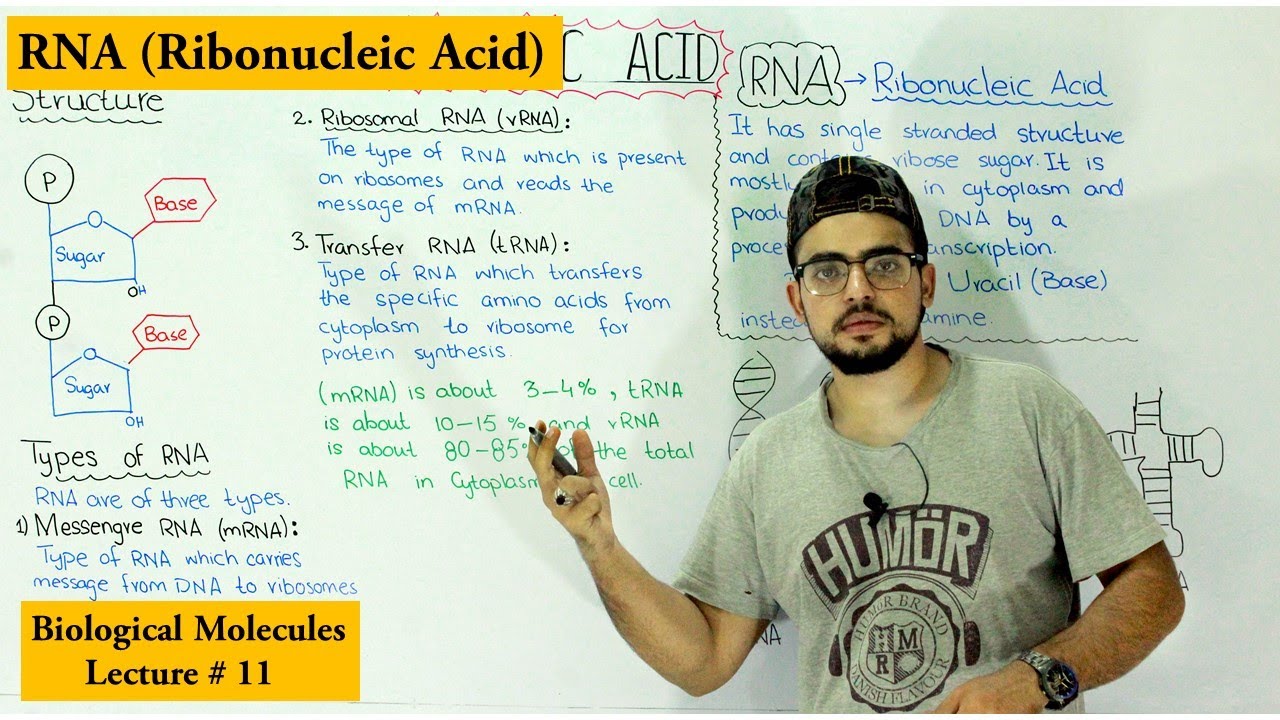 RNA (Ribonucleic Acid)
C ACID
Structure
P
Base
Sugar
OH
P
Base
Sugar
OH
Types of RNA
RNA are of three types.
1) Messengre RNA (mRNA):
Type of RNA which carries
message from DNA to ribosomes
2. Ribosomal RNA (rRNA):
The type of RNA which is present
on ribosomes and reads the
message of mRNA.
3. Transfer RNA (tRNA):
Type of RNA which transfers
the specific amino acids from
cytoplasm to ribosome for
protein synthesis.
(mRNA) is about 3-4%, tRNA
is about 10-15% and rRNA
is about 80-85% of the total
RNA in Cytoplasm cell.
RNA → Ribonucleic Acid
It has single stranded structure
and ribose sugar. It is
mostly in cytoplasm and
DNA by a
Uracil (Base)
HUMÖR
HUMöR BRAND
H M
R
VANISH FLAVOUR
Biological Molecules
Lecture # 11